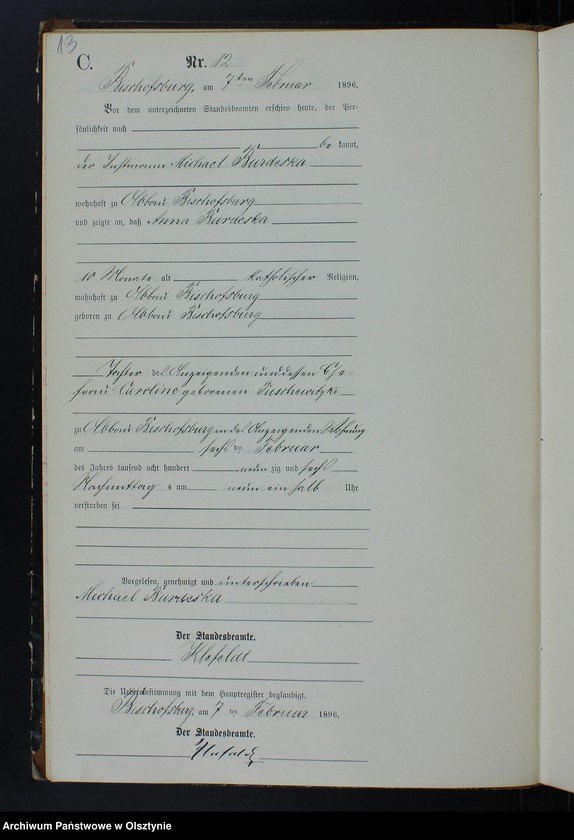 13
C.
Nr. 12
Bischofsburg, am 7ten Februar 1896.
Vor dem unterzeichneten Standesbeamten erschien heute, der Per-
sönlichkeit nach
be kannt,
der Instmann Michael Burdeska
wohnhaft zu Abbau Bischofsburg
und zeigte an, daß Anna Burdeska
10 Monate alt katholischer Religion,
wohnhaft zu Abbau Bischofsburg
geboren zu Abbau Bischofsburg
Tochter des Anzeigenden und dessen Ehe-
frau Caroline geborenen
zu Abbau Bischofsburg in des Anzeigenden Wohnung
am sechsten Februar
des Jahres tausend acht hundert neunzig und sechs
Nachmittag s um neun ein halb Uhr
verstorben sei.
Vorgelesen, genehmigt und unterschrieben
Michael Burdeska
Der Standesbeamte.
Klefeldt
Die Uebereinstimmung mit dem Hauptregister beglaubigt.
Bischofsburg, am 7ten Februar 1896.
Der Standesbeamte.
Archiwum Państwowe w Olsztynie